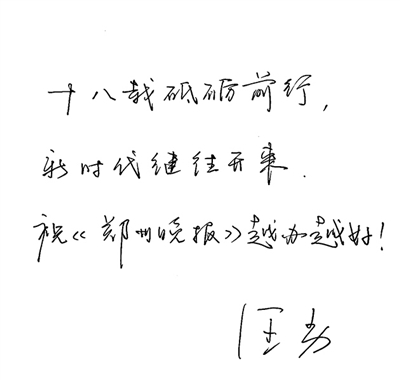 十八载砥砺前行，
新时代继往开来．
祝《郑州晚报》越办越好！
汪